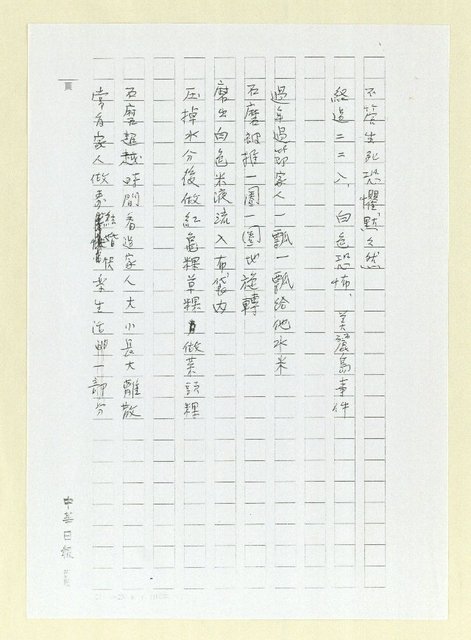 不管生死恐懼默々然
經過二二八、白色恐怖、美麗島事件
過年過節家人一瓢一瓢給他水米
石磨被推一圈一圈地旋轉
磨出白色米液流入布袋內
压掉水分後做紅龜粿草粿做菜頭粿
石磨超越時間看這家人大小長大離散
當有家人做事結婚快樂生活嘅一部分
中華日報